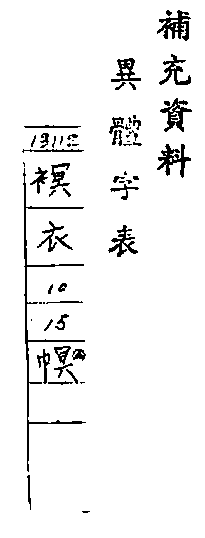 補充資料
異體字表
衣
10
15
幎